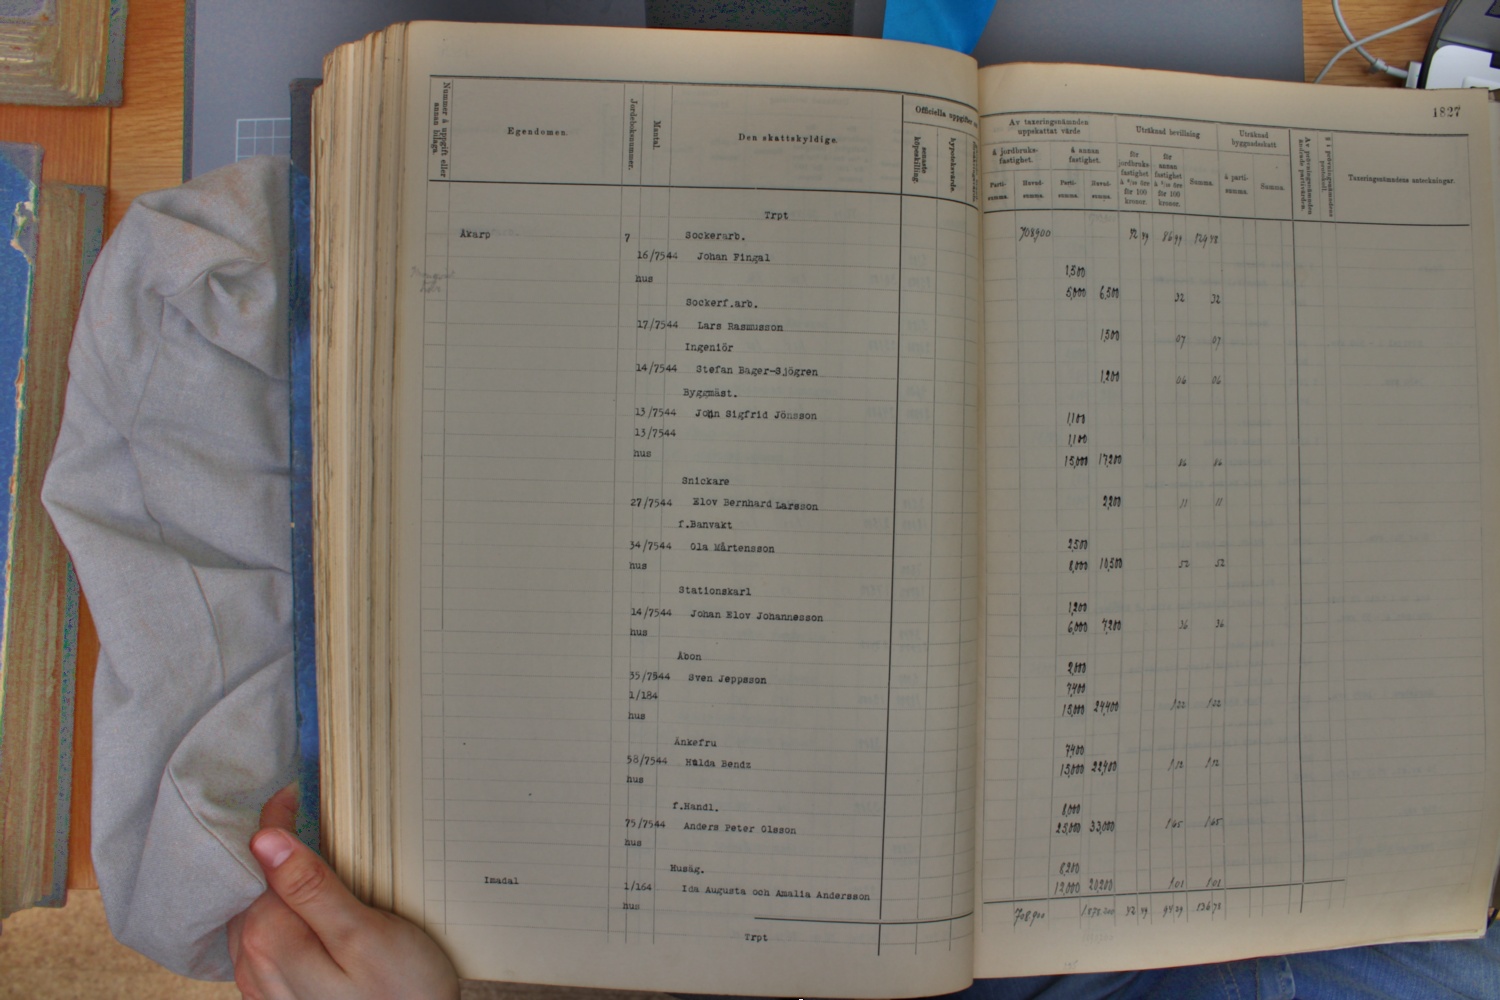 1827
Nummer å uppgift eller annan bilaga.
Egendomen.
Jordeboksnummer.
Mantal.
Den skattskyldige
Officiella uppgifter
senaste köpeskilling.
hypoteksvärde.
Av taxeringsnämnden uppskattat värde
å jordbruksfastighet.
å annan fastighet.
Partisumma.
Huvudsumma.
Partisumma.
Huvudsumma.
Uträknad bevillning
för jordbruksfastighet
för 100 kronor.
för annan fastighet
för 100 kronor.
Summa.
Uträknad byggnadsskatt
å partisumma.
Summa.
Taxeringsnämndens anteckningar.
Trpt
708,900
Åkarp 7 Sockerarb.
16/7544 Johan Fingal 1,500
hus 5,000 6,500 32 32
Sockerf.arb.
17/7544 Lars Rasmusson 1,500 07 07
Ingeniör
14/7544 Stefan Bager-Sjögren 1,200 06 06
Byggmäst.
13/7544 John Sigfrid Jönsson 1,100
13/7544 1,100
hus 15,000 17,200 86 86
Snickare
27/7544 Elov Bernhard Larsson 2,200 11 11
f.Banvakt
34/7544 Ola Mårtensson 2,500
hus 8,000 10,500 52 52
Stationskarl
14/7544 Johan Elov Johannesson 1,200
hus 6,000 7,200 36 36
Åbon
35/7544 Sven Jeppsson 2,000
1/184 7,400
hus 15,000 24,400 1,22 1,22
Änkefru
58/7544 Hulda Bendz 7,400
hus 15,000 22,400 1,12 1,12
f.Handl.
75/7544 Anders Peter Olsson 8,000
hus 25,000 33,000 1,65 1,65
Husäg.
Imadal 1/164 Ida Augusta och Amalia Andersson 8,200
hus 12,000 20,200 1,01 1,01
Trpt 708,900